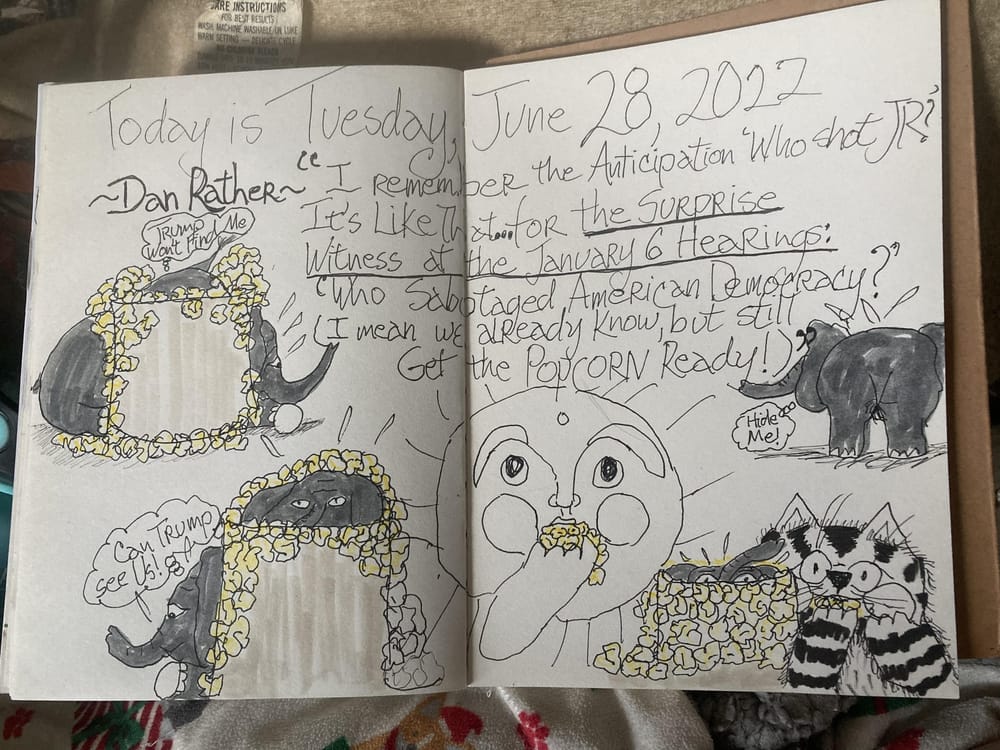 CARE INSTRUCTIONS
FOR BEST RESULTS
WASH MACHINE WASHABLE OR LUKE
WARM SETTING — DELICATE CYCLE
NO CHLORINE BLEACH
Today is Tuesday, June 28, 2022
~Dan Rather~
"I remember the Anticipation 'Who shot JR?'
It's Like That...for the SURPRISE
Witness at the January 6 Hearings:
"Who Sabotaged American Democracy?"
(I mean we already know, but still
Get the POPCORN Ready!)
Trump
Won't Find Me
Hide
Me!
Can Trump
see Us!